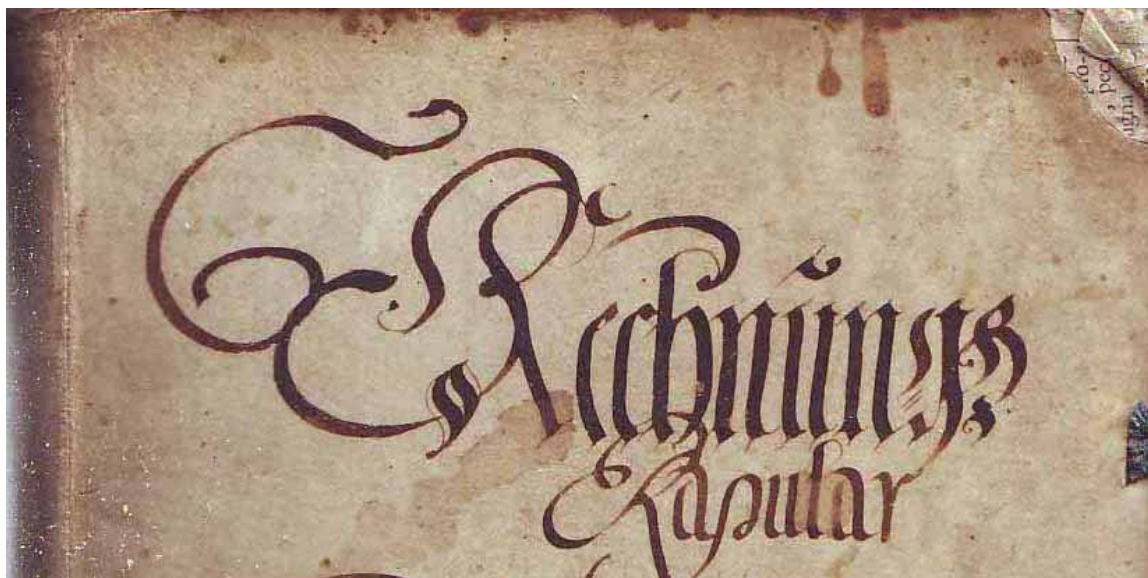 Rechnungs
Rapular